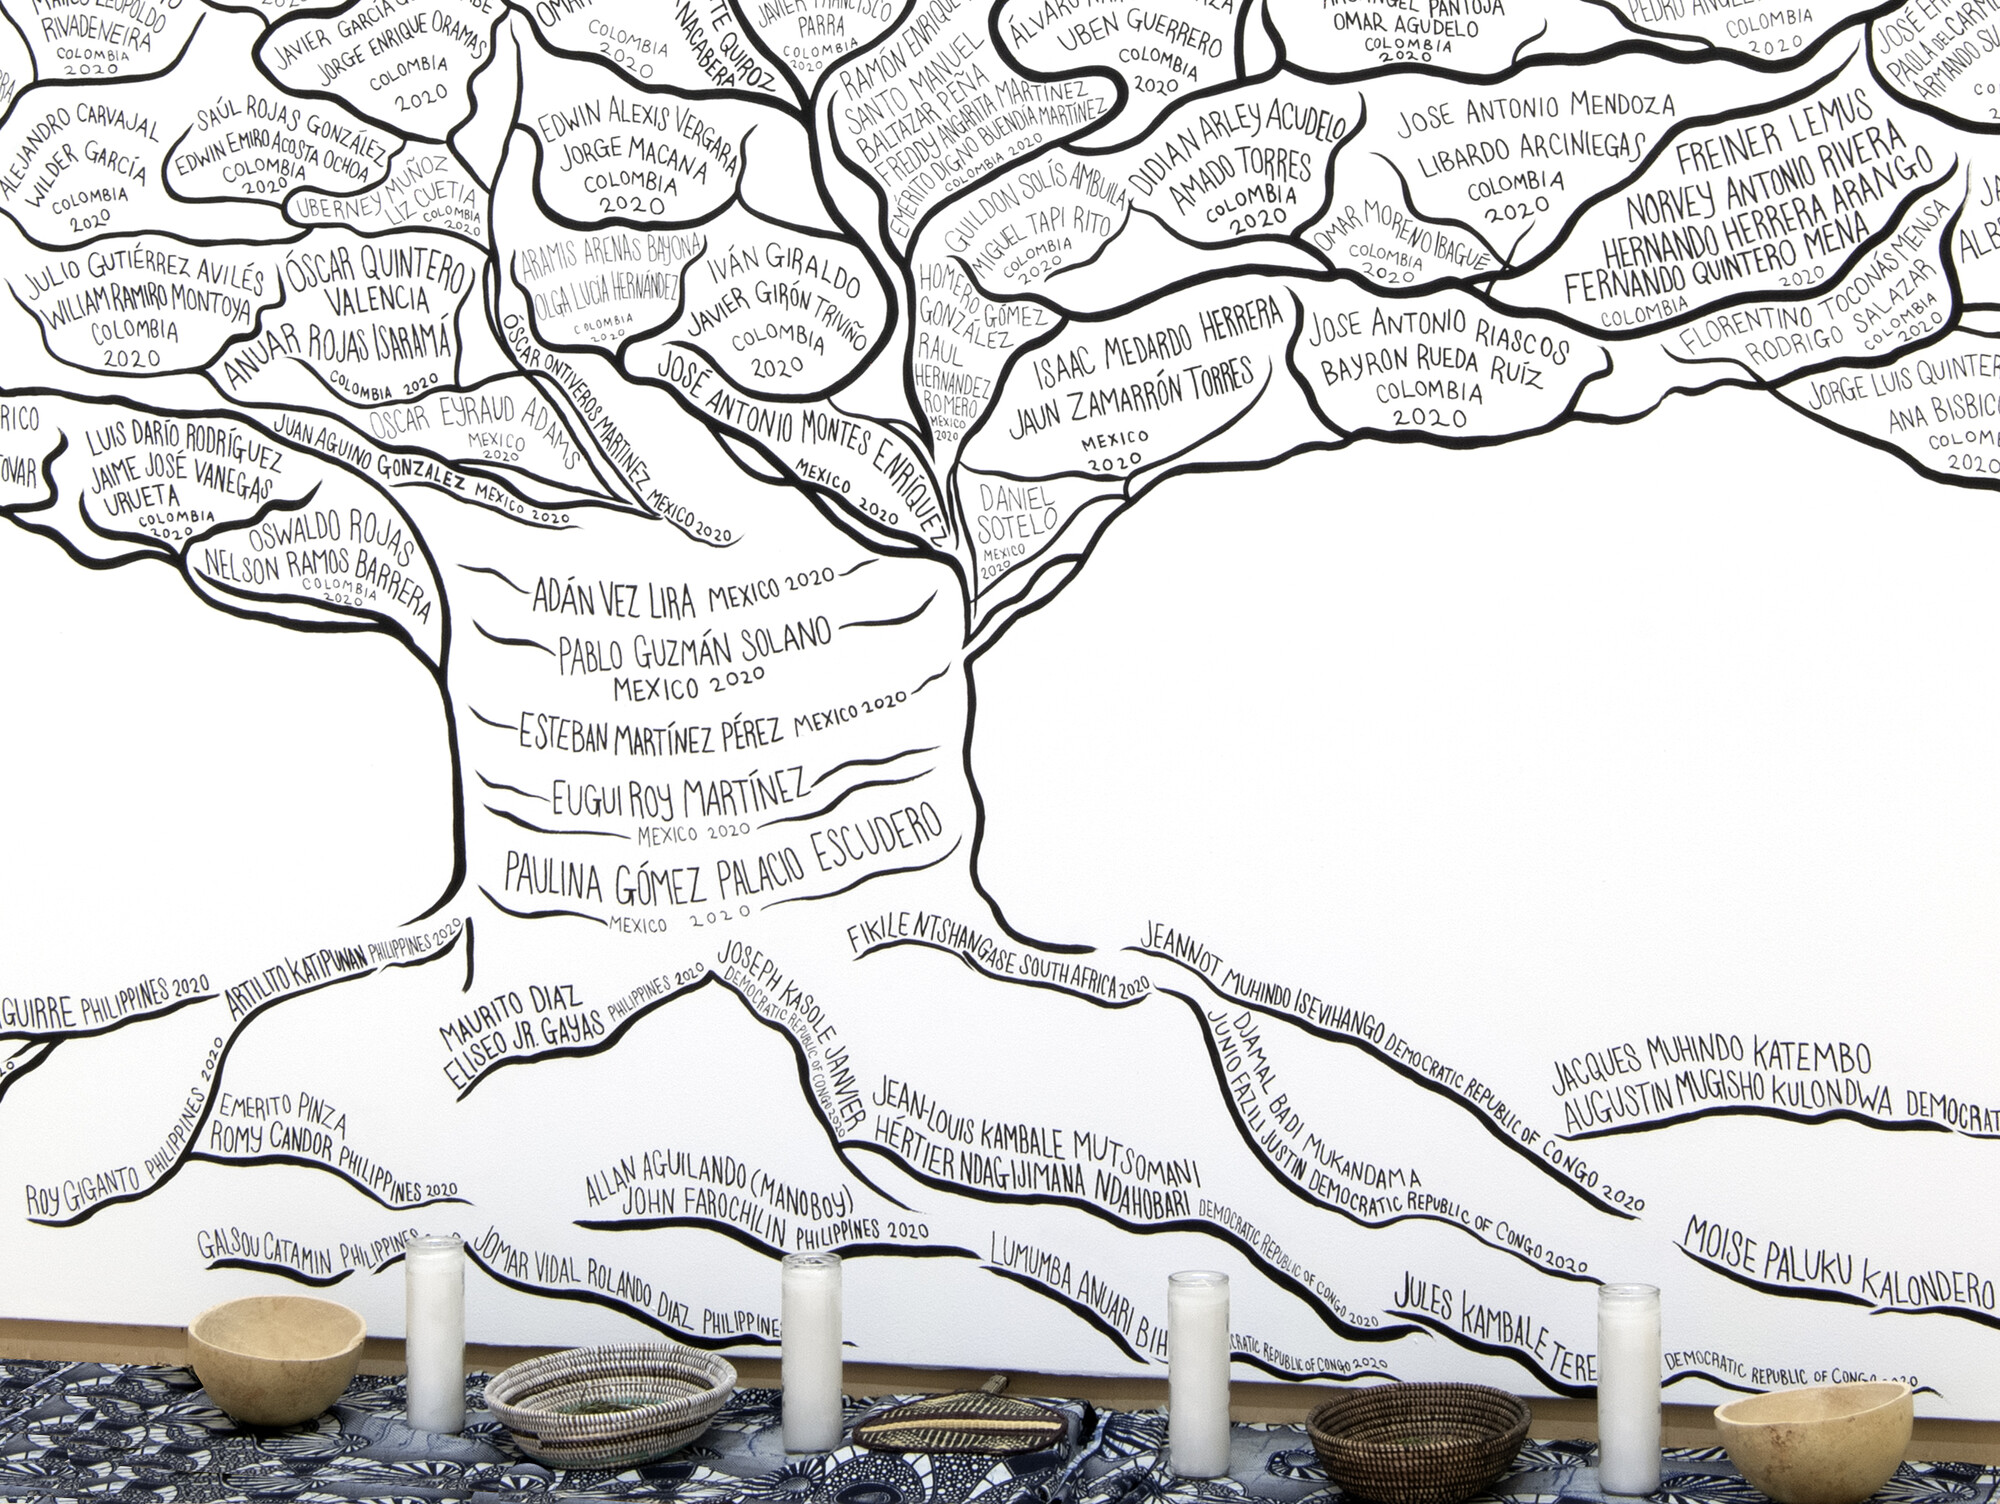 RIVADENEIRA
COLOMBIA
2020
JAVIER GARCÍA
JORGE ENRIQUE ORAMAS
COLOMBIA
2020
COLOMBIA
2020
QUIROZ
JAVIER FRANCISCO
PARRA
COLOMBIA
2020
RAMÓN ENRIQUE
SANTO MANUEL
BALTAZAR PEÑA
FREDDY ANGARITA MARTÍNEZ
EMÉRITO DIGNO BUENDÍA MARTÍNEZ
COLOMBIA 2020
UBEN GUERRERO
COLOMBIA
2020
PANTOJA
OMAR AGUDELO
COLOMBIA
2020
COLOMBIA
2020
ALEJANDRO CARVAJAL
WILDER GARCÍA
COLOMBIA
2020
SAÚL ROJAS GONZÁLEZ
EDWIN EMIRO ACOSTA OCHOA
COLOMBIA
2020
UBERNEY MUÑOZ
LIZ CUETIA
COLOMBIA
2020
EDWIN ALEXIS VERGARA
JORGE MACANA
COLOMBIA
2020
DIDIAN ARLEY ACUDELO
AMADO TORRES
COLOMBIA
2020
JOSE ANTONIO MENDOZA
LIBARDO ARCINIEGAS
COLOMBIA
2020
FREINER LEMUS
NORVEY ANTONIO RIVERA
HERNANDO HERRERA ARANGO
FERNANDO QUINTERO MENA
COLOMBIA 2020
GUILDON SOLÍS AMBUILA
MIGUEL TAPI RITO
COLOMBIA
2020
OMAR MORENO IBAGUÉ
COLOMBIA
2020
JULIO GUTIÉRREZ AVILÉS
WILLIAM RAMIRO MONTOYA
COLOMBIA
2020
ÓSCAR QUINTERO
VALENCIA
ANUAR ROJAS ISARAMÁ
COLOMBIA 2020
ARAMIS ARENAS BAYONA
OLGA LUCÍA HERNÁNDEZ
COLOMBIA
2020
IVÁN GIRALDO
JAVIER GIRÓN TRIVIÑO
COLOMBIA
2020
HOMERO GÓMEZ
GONZÁLEZ
RAUL
HERNANDEZ
ROMERO
MEXICO
2020
ISAAC MEDARDO HERRERA
JAUN ZAMARRÓN TORRES
MEXICO
2020
JOSE ANTONIO RIASCOS
BAYRON RUEDA RUÍZ
COLOMBIA
2020
FLORENTINO TOCONÁS MENSA
RODRIGO SALAZAR
COLOMBIA
2020
JORGE LUIS QUINTER
ANA BISBIC
COLOM
2020
RICO
TOVAR
LUIS DARÍO RODRÍGUEZ
JAIME JOSÉ VANEGAS
URUETA
COLOMBIA
2020
OSWALDO ROJAS
NELSON RAMOS BARRERA
COLOMBIA
2020
JUAN AGUINO GONZALEZ MEXICO 2020
OSCAR EYRAUD ADAMS
MEXICO
2020
ÓSCAR ONTIVEROS MARTÍNEZ MEXICO 2020
JOSÉ ANTONIO MONTES ENRÍQUEZ
MEXICO 2020
DANIEL
SOTELO
MEXICO
2020
ADÁN VEZ LIRA MEXICO 2020
PABLO GUZMÁN SOLANO
MEXICO 2020
ESTEBAN MARTÍNEZ PÉREZ MEXICO 2020
EUGUI ROY MARTÍNEZ
MEXICO 2020
PAULINA GÓMEZ PALACIO ESCUDERO
MEXICO 2020
GUIRRE PHILIPPINES 2020
ARTILITO KATIPUNAN PHILIPPINES 2020
ROY GIGANTO PHILIPPINES 2020
EMERITO PINZA
ROMY CANDOR PHILIPPINES 2020
MAURITO DIAZ
ELISEO JR. GAYAS PHILIPPINES 2020
JOSEPH KASOLE JANVIER
DEMOCRATIC REPUBLIC OF CONGO 2020
FIKILE NTSHANGASE SOUTH AFRICA 2020
JEANNOT MUHINDO ISEVIHANGO DEMOCRATIC REPUBLIC OF CONGO 2020
DJAMAL BADI MUKANDAMA
JUNIO FAZILI JUSTIN DEMOCRATIC REPUBLIC OF CONGO 2020
JACQUES MUHINDO KATEMBO
AUGUSTIN MUGISHO KULONDWA DEMOCRAT
JEAN-LOUIS KAMBALE MUTSOMANI
HÉRTIER NDAGIJIMANA NDAHOBARI DEMOCRATIC REPUBLIC OF CONGO 2020
ALLAN AGUILANDO (MANOBOY)
JOHN FAROCHILIN PHILIPPINES 2020
GALSOU CATAMIN PHILIPPINES
JOMAR VIDAL ROLANDO DIAZ PHILIPPINE
LUMUMBA ANUARI BIH CRATIC REPUBLIC OF CONGO 2020
JULES KAMBALE TERE DEMOCRATIC REPUBLIC OF CONGO 2020
MOISE PALUKU KALONDERO